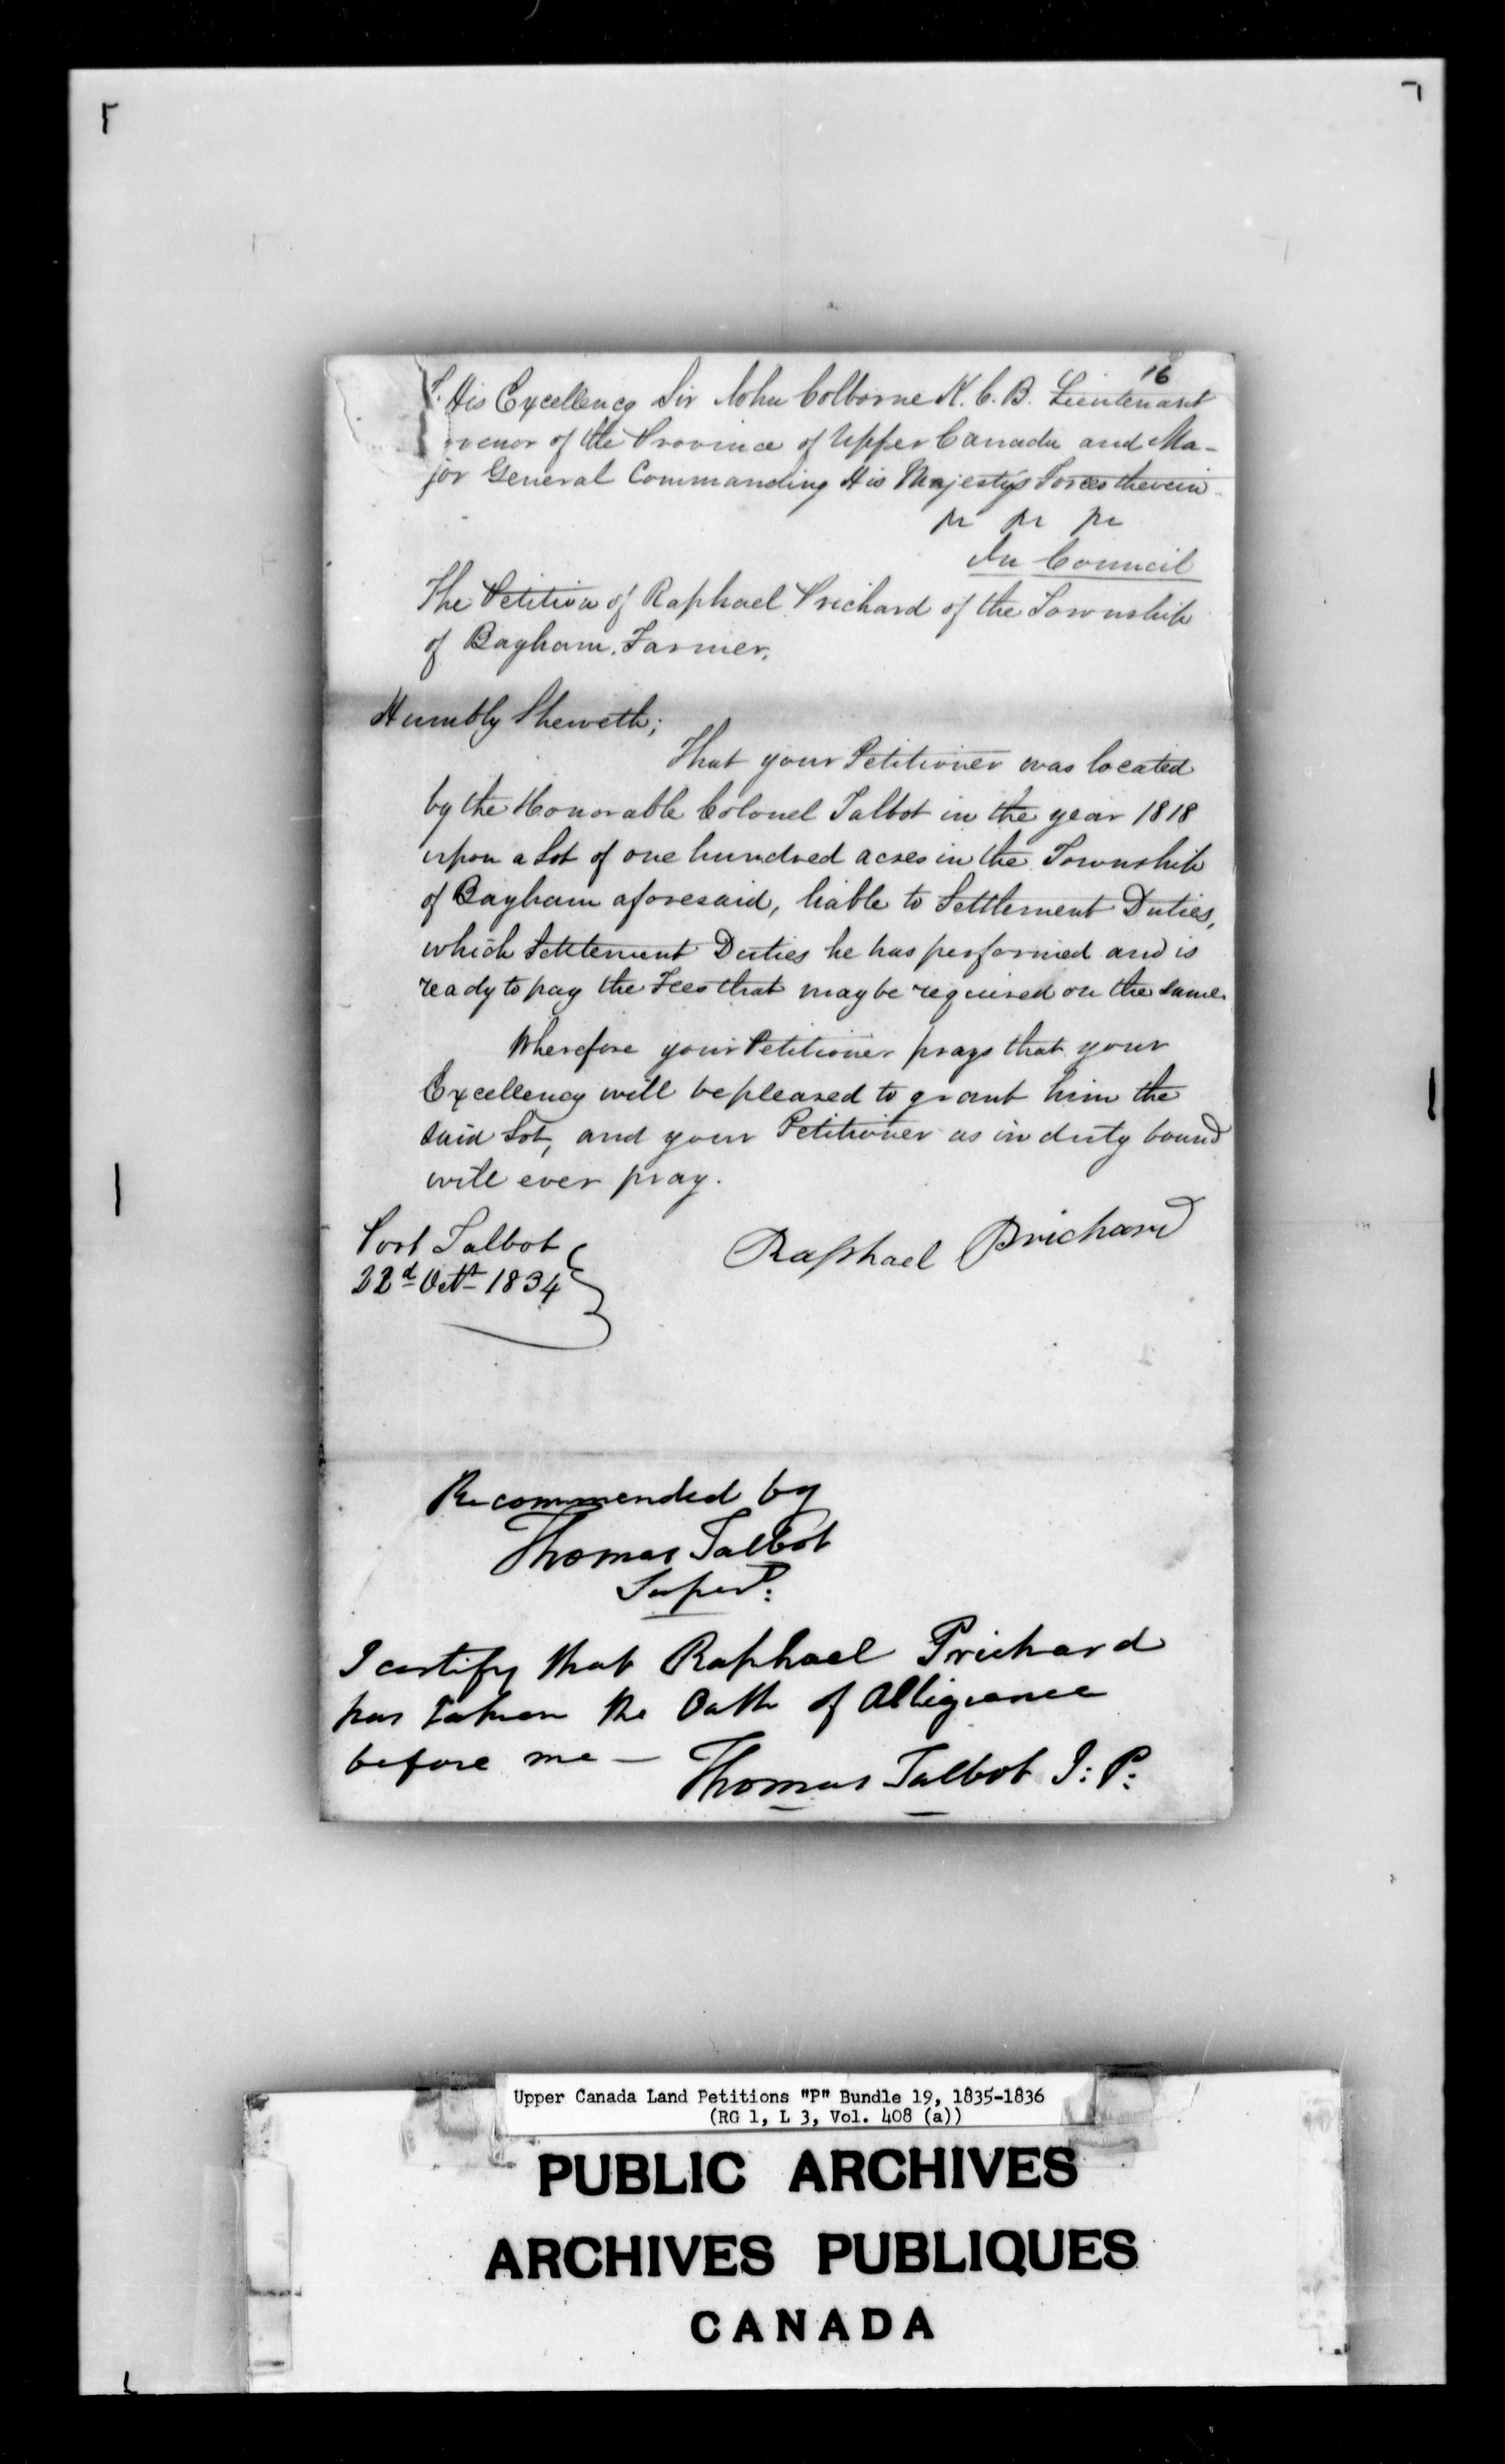 16
His Excellency Sir John Colborne K.C.B. Lieutenant
vernor of the Province of Upper Canada and Ma-
jor General Commanding His Majesty's Forces therein
In Council
The Petition of Raphael Prichard of the Township
of Bayham, Farmer,
Humbly Sheweth;
That your Petitioner was located
by the Honorable Colonel Talbot in the year 1818
upon a Lot of one hundred acres in the Township
of Bayham aforesaid, liable to Settlement Duties,
which Settlement Duties he has performed and is
ready to pay the Fees that may be required on the same.
Wherefore your Petitioner prays that your
Excellency will be pleased to grant him the
said Lot, and your Petitioner as in duty bound
will ever pray.
Port Talbot
22d Octr 1834
Raphael Prichard
Recommended by
Thomas Talbot
Supert:
I certify that Raphael Prichard
has taken the Oath of Allegiance
before me — Thomas Talbot J: P:
Upper Canada Land Petitions "P" Bundle 19, 1835-1836
(RG 1, L 3, Vol. 408 (a))
PUBLIC ARCHIVES
ARCHIVES PUBLIQUES
CANADA